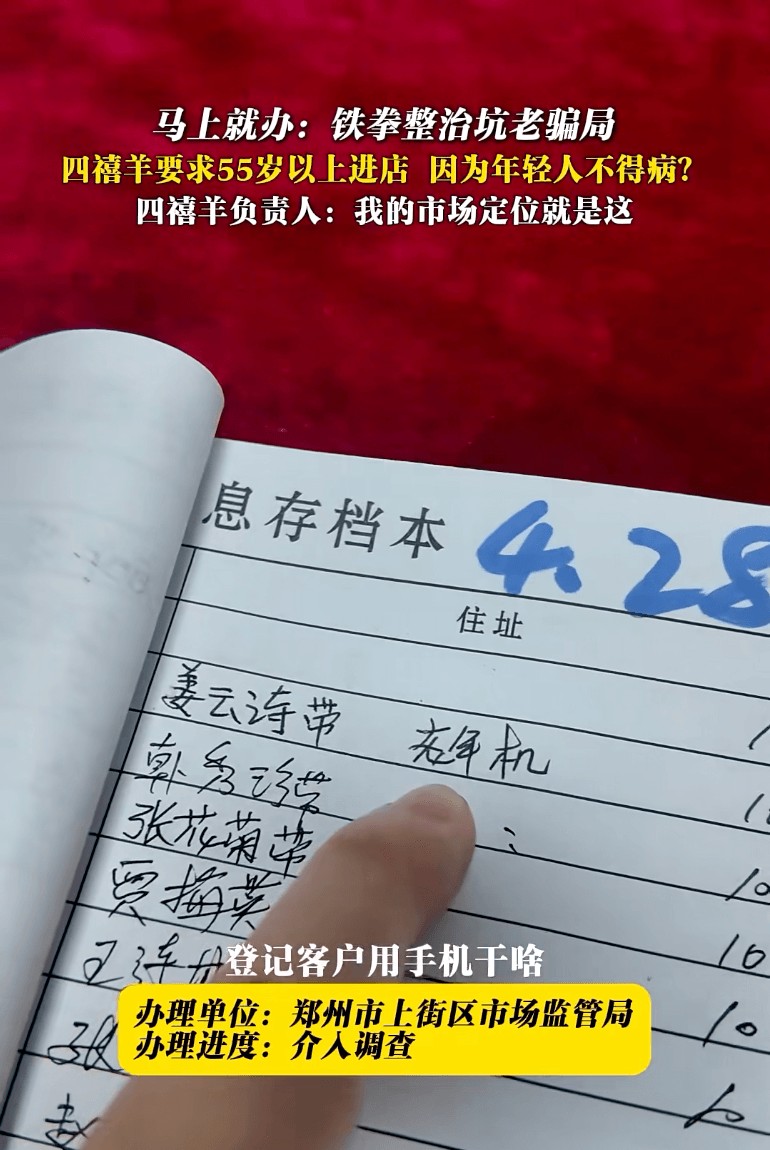 马上就办：铁拳整治坑老骗局
四禧羊要求55岁以上进店 因为年轻人不得病？
四禧羊负责人：我的市场定位就是这
息存档本 4.28
住址
姜云诗带 老年机
张花菊带
贾梅英
登记客户用手机干啥
办理单位：郑州市上街区市场监管局
办理进度：介入调查